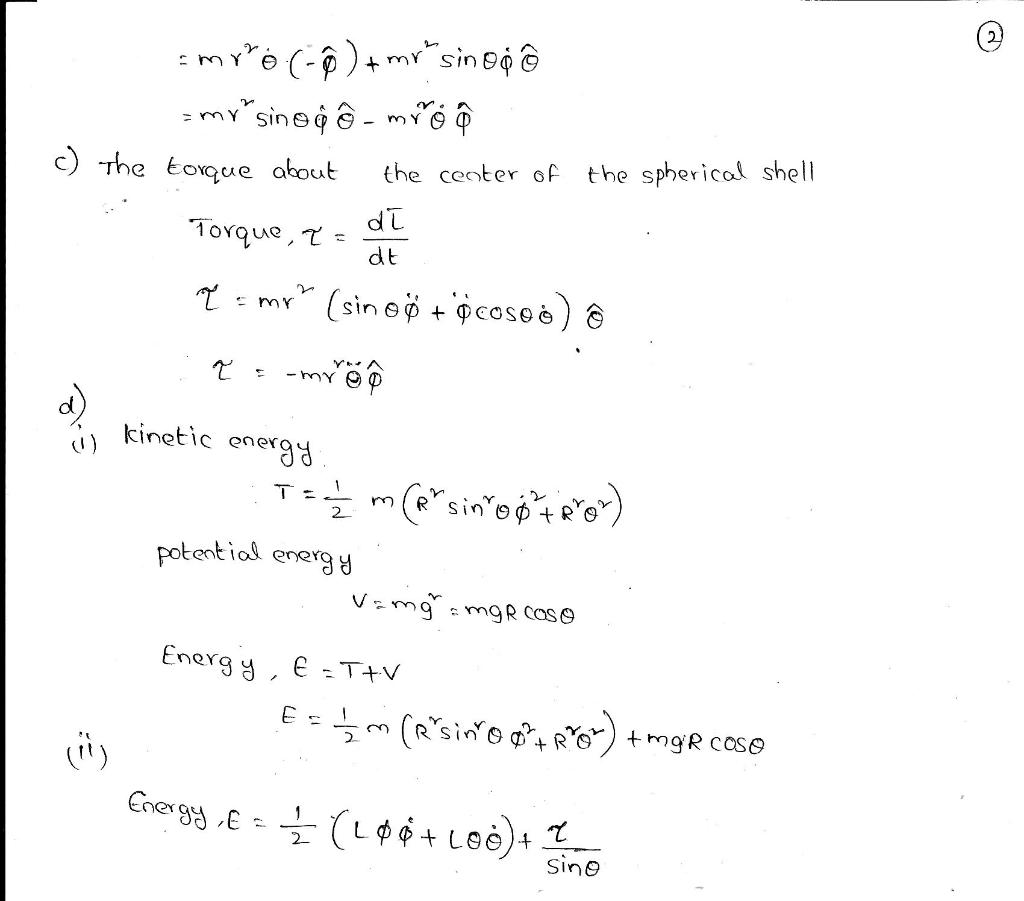 ②
= mr²θ̇ (-φ̂) + mr² sinθφ̇ θ̂
= mr² sinθφ̇ θ̂ - mr²θ̇ φ̂
c) The torque about the center of the spherical shell
Torque, τ = dL̄/dt
τ = mr² (sinθφ̈ + φ̇cosθθ̇) θ̂
τ = -mr²θ̈ φ̂
d)
(i) kinetic energy
T = 1/2 m (R² sin²θφ̇² + R²θ̇²)
potential energy
V = mgr = mgR cosθ
Energy, E = T+V
E = 1/2 m (R² sin²θ φ̇² + R²θ̇²) + mgR cosθ
(ii)
Energy, E = 1/2 (Lφφ̇ + Lθθ̇) + τ/sinθ